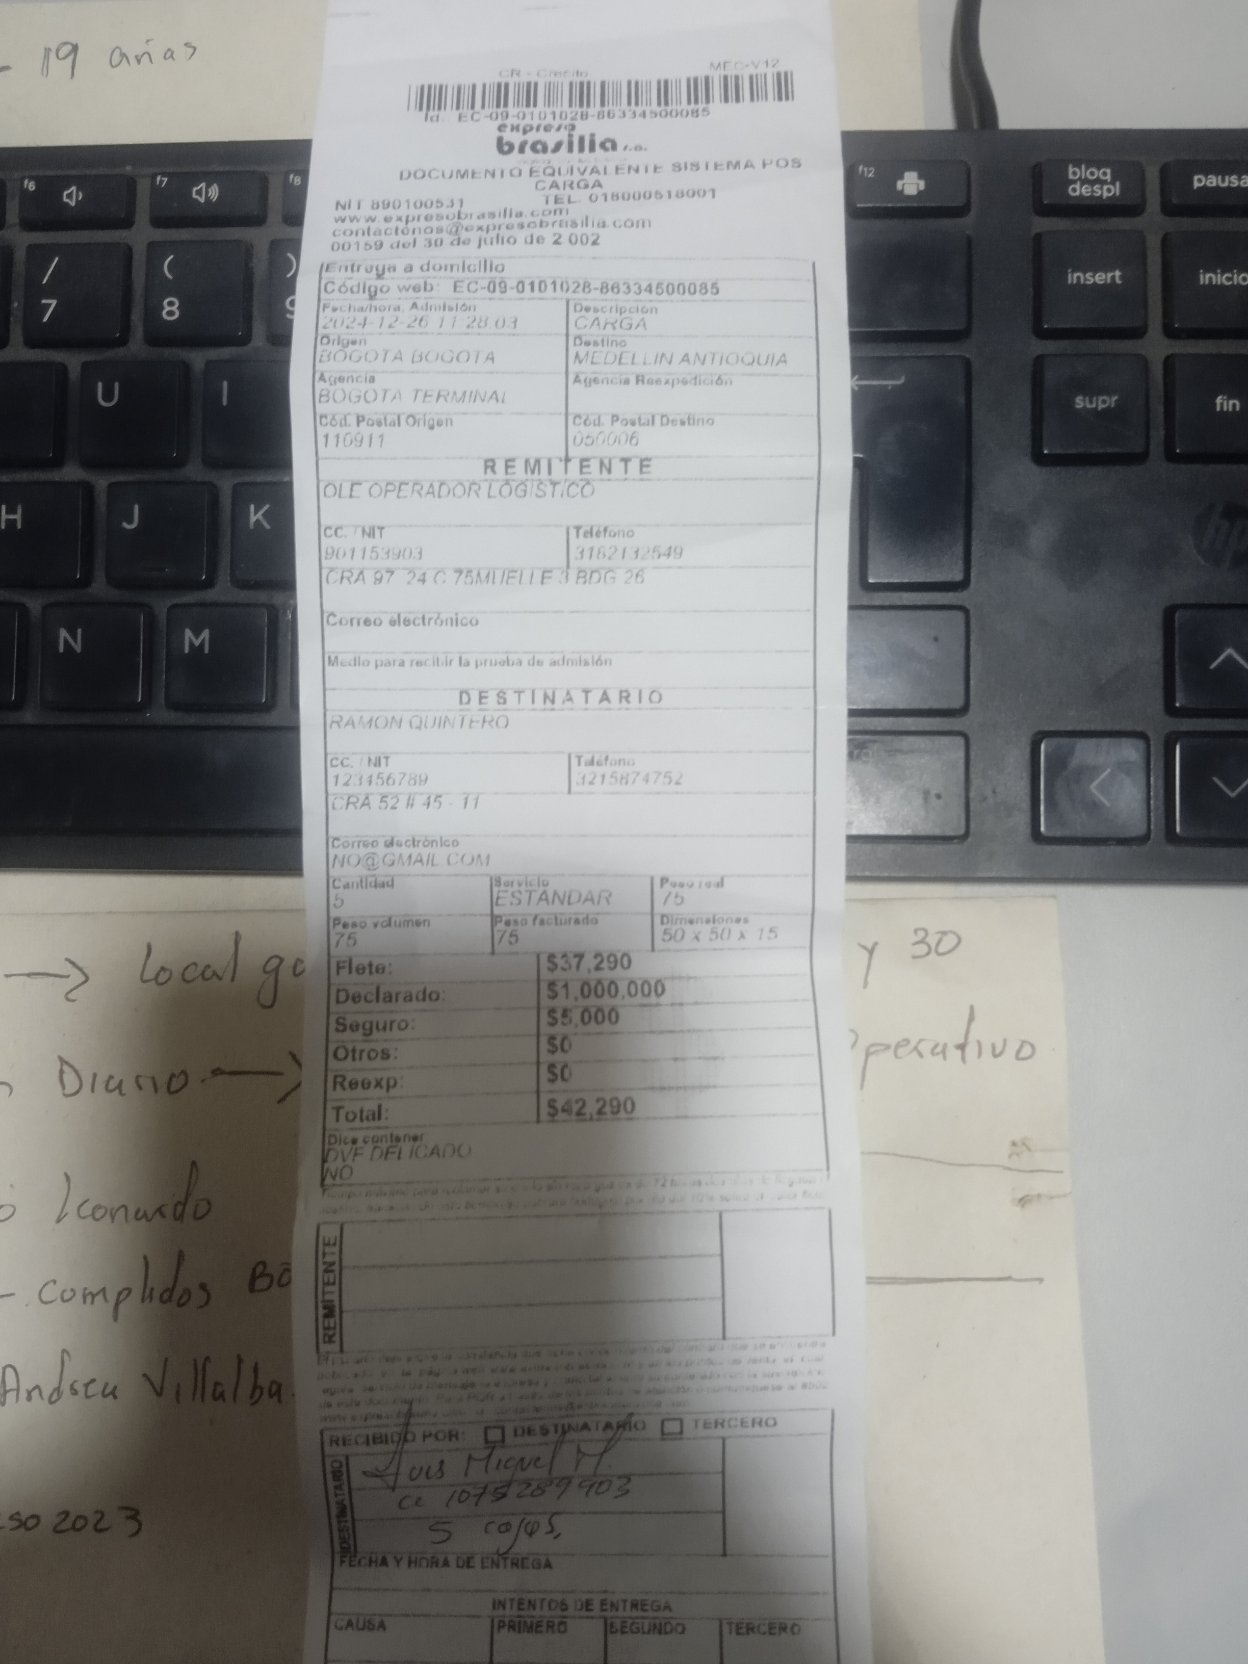 - 19 años
CR - Credito MEC-V12
Id. EC-09-0101028-86334500085
expreso
brasilia s.a.
DOCUMENTO EQUIVALENTE SISTEMA POS
CARGA
NIT 890100531 TEL. 018000518001
www.expresobrasilia.com
contactenos@expresobrasilia.com
00159 del 30 de julio de 2 002
Entrega a domicilio
Código web: EC-09-0101028-86334500085
Fecha/hora, Admisión Descripción
2024-12-26 11:28:03 CARGA
Origen Destino
BOGOTA BOGOTA MEDELLIN ANTIOQUIA
Agencia Agencia Reexpedición
BOGOTA TERMINAL
Cód. Postal Origen Cód. Postal Destino
110911 050006
REMITENTE
OLE OPERADOR LOGISTICO
CC. / NIT Teléfono
901153903 3182132549
CRA 97 24 C 75MUELLE 3 BDG 26
Correo electrónico
Medio para recibir la prueba de admisión
DESTINATARIO
RAMON QUINTERO
CC. / NIT Teléfono
123456789 3215874752
CRA 52 # 45 - 11
Correo electrónico
NO@GMAIL.COM
Cantidad Servicio Peso real
5 ESTANDAR 75
Peso volumen Peso facturado Dimensiones
75 75 50 x 50 x 15
Flete: $37,290
Declarado: $1,000,000
Seguro: $5,000
Otros: $0
Reexp: $0
Total: $42,290
Dice contener
DVF DELICADO
NO
REMITENTE
RECIBIDO POR: DESTINATARIO TERCERO
DESTINATARIO
Luis Miguel M.
cc 1075289903
5 cajas.
FECHA Y HORA DE ENTREGA
INTENTOS DE ENTREGA
CAUSA PRIMERO SEGUNDO TERCERO
→ local
y 30
Diario →
Leonardo
- Complidos
Andrea Villalba
2023
f6 f7 f8
/ 7
( 8
)
U I
H J K
N M
f12
bloq despl
pausa
insert
inicio
supr
fin
hp